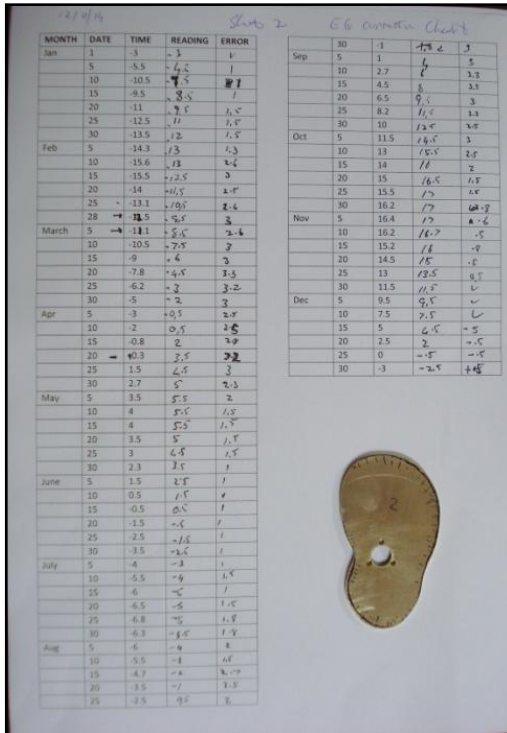 Sheet 2 EG correction Check
MONTH DATE TIME READING ERROR
Jan 1 -3 -3 ✓
5 -5.5 -4.5 1
10 -10.5
15 -9.5 -8.5 1
20 -11 -9.5 1,5
25 -12.5 -11 1,5
30 -13.5 -12 1,5
Feb 5 -14.3 -13 1,3
10 -15.6 -13 2.6
15 -15.5 -12.5 3
20 -14 -11,5 2.5
25 -13.1 -10,5 2.6
28 -9,5 3
March 5 -8.5 2.6
10 -10.5 -7.5 3
15 -9 -6 3
20 -7.8 -4.5 3.3
25 -6.2 -3 3.2
30 -5 -2 3
Apr 5 -3 -0,5 2.5
10 -2 0,5 2.5
15 -0.8 2 2.8
20 3,5
25 1.5 4.5 3
30 2.7 5 2.3
May 5 3.5 5.5 2
10 4 5.5 1,5
15 4 5.5 1,5
20 3.5 5 1,5
25 3 4.5 1,5
30 2.3 3.5
June 5 1.5 2.5 1
10 0.5 1.5
15 -0.5 0.5 1
20 -1.5 -.5 1
25 -2.5 -1.5 1
30 -3.5 -2.5 1
July 5 -4 -3 1
10 -5.5 -4 1.5
15 -6 -5 1
20 -6.5 -5 1.5
25 -6.8 -5 1.8
30 -6.3 1.8
Aug 5 -6 -4 2
10 -5.5 1.5
15 -4.7 -2 2.7
20 -3.5 -1 2.5
25 -2.5
30 -1 3
Sep 5 1 4
10 2.7 6 3.3
15 4.5 8 3.5
20 6.5 9,5 3
25 8.2 11,5 3.3
30 10 12.5 2.5
Oct 5 11.5 14.5 3
10 13 15.5 2.5
15 14 16 2
20 15 16.5 1.5
25 15.5 17 1.5
30 16.2 17
Nov 5 16.4 17
10 16.2 16.7 .5
15 15.2 16 .8
20 14.5 15 .5
25 13 13.5 0,5
30 11.5 11,5 ✓
Dec 5 9.5 9,5 ✓
10 7.5 7.5 ✓
15 5 4.5 -.5
20 2.5 2 -.5
25 0 -.5 -.5
30 -3 -2.5
2